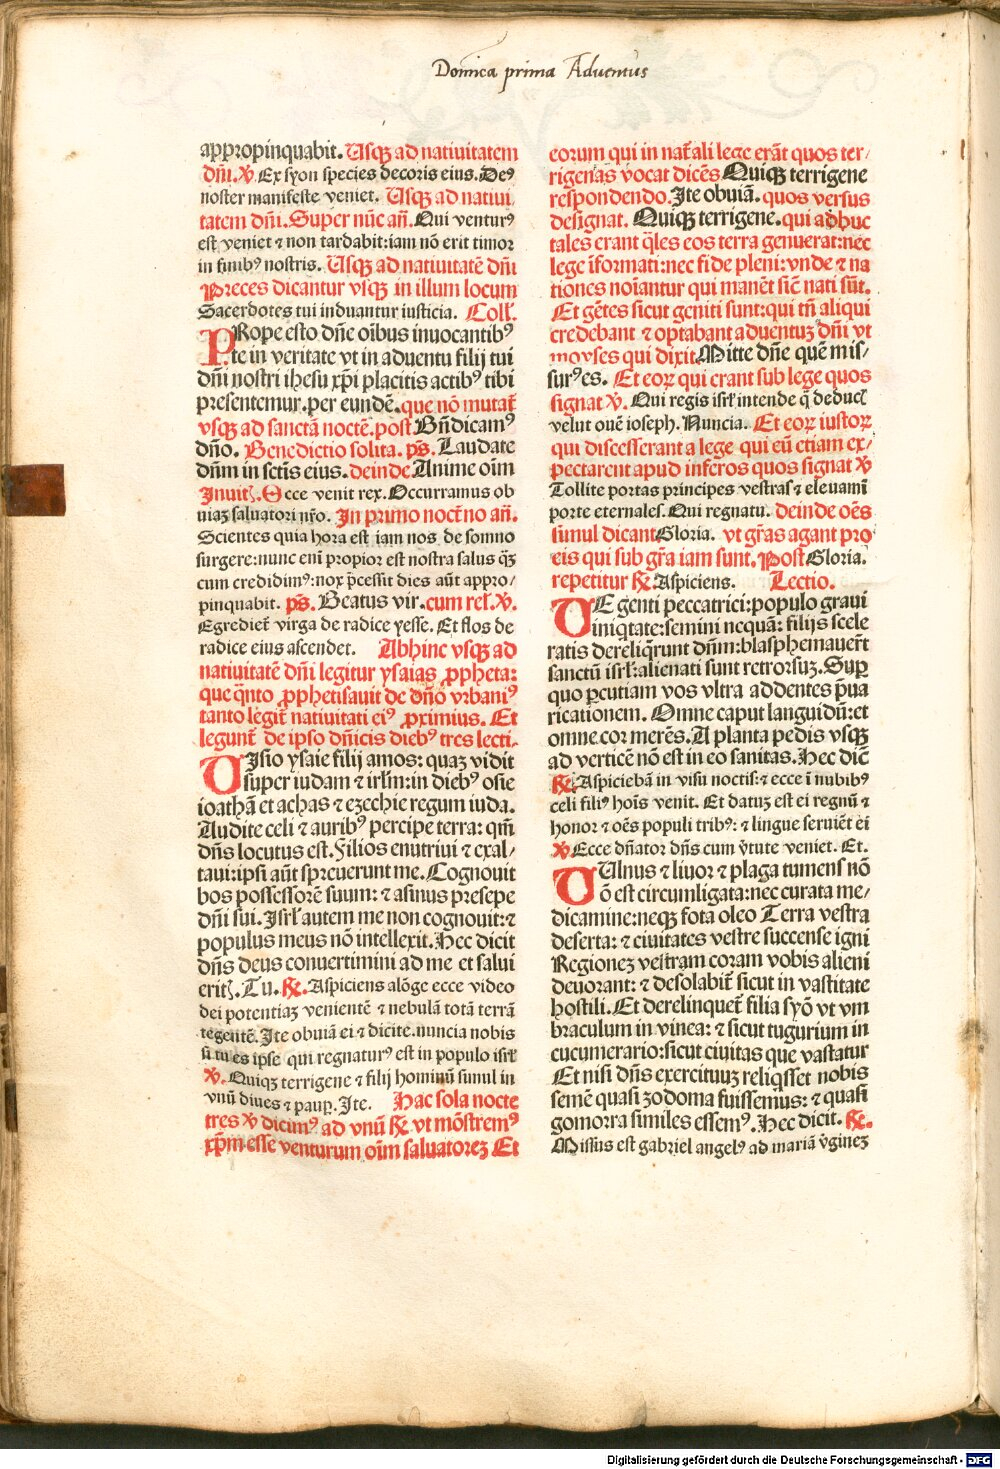 Domĩca prima Aduentus
appropinquabit. Usqꝫ ad natiuitatem
dñi. ℣. Ex syon species decoris eius. Deꝰ
noster manifeste veniet. Usqꝫ ad natiui
tatem dñi. Super nũc añ. Qui venturꝰ
est veniet ⁊ non tardabit: iam nõ erit timor
in finibꝰ nostris. Usqꝫ ad natiuitatẽ dñi
Preces dicantur vsqꝫ in illum locum
Sacerdotes tui induantur iusticia. Coll.
PRope esto dñe oĩbus inuocantibꝰ
te in veritate vt in aduentu filij tui
dñi nostri ihesu xp̃i placitis actibꝰ tibi
presentemur. per eundẽ. que nõ mutat̃
vsqꝫ ad sanctã noctẽ. post Bñdicamꝰ
dño. Benedictio solita. p̃s. Laudate
dñm in sctĩs eius. deinde Anime oĩm
Inuit. Ecce venit rex. Occurramus ob
uiaꝫ saluatori nr̃o. In primo noct̃no añ.
Scientes quia hora est iam nos de somno
surgere: nunc eni propior est nostra salus qꝫ̃
cum credidimꝰ: nox p̃cessit dies aũt appro/
pinquabit. p̃s. Beatus vir. cum rel. ℣.
Egrediet̃ virga de radice yesse. Et flos de
radice eius ascendet. Abhinc vsqꝫ ad
natiuitatẽ dñi legitur ysaias ꝓpheta:
que q̃nto ꝓphetisauit de dño vrbaniꝰ
tanto legit̃ natiuitati eiꝰ ꝓximius. Et
legunt̃ de ipso dñicis diebꝰ tres lecti.
VIsio ysaie filij amos: quaꝫ vidit
super iudam ⁊ irlm̃: in diebꝰ osie
ioathã et achas ⁊ ezechie regum iuda.
Audite celi ⁊ auribꝰ percipe terra: qm̃
dñs locutus est. Filios enutriui ⁊ exal/
taui: ipsi aũt spreuerunt me. Cognouit
bos possessorẽ suum: ⁊ asinus presepe
dñi sui. Isrl̃ autem me non cognouit: ⁊
populus meus nõ intellexit. Hec dicit
dñs deus conuertimini ad me et salui
erit. Tu. ℟. Aspiciens alõge ecce video
dei potentiaꝫ venientẽ ⁊ nebulã totã terrã
tegentẽ. Ite obuiã ei ⁊ dicite. nuncia nobis
si tu es ipse qui regnaturꝰ est in populo isrl̃
℣. Quiqꝫ terrigene ⁊ filij hominũ simul in
vnũ diues ⁊ paup. Ite. Hac sola nocte
tres ℣ dicimꝰ ad vnũ ℟ vt mõstremꝰ
xp̃m esse venturum oĩm saluatoreꝫ Et
eorum qui in nat̃ali lege erãt quos ter/
rigenas vocat dicẽs Quiqꝫ terrigene
respondendo. Ite obuiã. quos versus
designat. Quiqꝫ terrigene. qui adhuc
tales erant q̃les eos terra genuerat: nec
lege ĩformati: nec fide pleni: vnde ⁊ na
tiones noĩantur qui manẽt sic̃ nati sũt.
Et gẽtes sicut geniti sunt: qui tñ aliqui
credebant ⁊ optabant aduentuꝫ dñi vt
moyses qui dixit Mitte dñe quẽ mis/
surꝰ es. Et eoꝝ qui erant sub lege quos
signat ℣. Qui regis isrl̃ intende q̃ deducl̃
velut ouẽ ioseph. Nuncia. Et eoꝝ iustoꝝ
qui discesserant a lege qui eũ etiam ex/
pectarent apud inferos quos signat ℣
Tollite portas principes vestras ⁊ eleuami
porte eternales. Qui regnatu. deinde oẽs
simul dicant Gloria. vt gr̃as agant pro
eis qui sub gr̃a iam sunt. Post Gloria.
repetitur ℟ Aspiciens. Lectio.
VE genti peccatrici: populo graui
iniqtate: semini nequã: filijs scele
ratis dereliq̃runt dñm: blasphemauer̃t
sanctũ isrl̃: alienati sunt retrorsuꝫ. Suꝑ
quo ꝑcutiam vos vltra addentes p̃ua
ricationem. Omne caput languidũ: et
omne cor merẽs. A planta pedis vsqꝫ
ad verticẽ nõ est in eo sanitas. Hec dic̃
℟. Aspiciebã in visu noctis: ⁊ ecce ĩ nubibꝰ
celi filiꝰ hoĩs venit. Et datuꝫ est ei regnũ ⁊
honor ⁊ oẽs populi tribꝰ: ⁊ lingue seruiẽt ei
℣ Ecce dñator dñs cum v̾tute veniet. Et.
VUlnus ⁊ liuor ⁊ plaga tumens nõ
õ est circumligata: nec curata me/
dicamine: neqꝫ fota oleo Terra vestra
deserta: ⁊ ciuitates vestre succense igni
Regioneꝫ vestram coram vobis alieni
deuorant: ⁊ desolabit̃ sicut in vastitate
hostili. Et derelinquet̃ filia syõ vt vm
braculum in vinea: ⁊ sicut tugurium in
cucumerario: sicut ciuitas que vastatur
Et nisi dñs exercituuꝫ reliqsset nobis
semẽ quasi zodoma fuissemus: ⁊ quasi
gomorra similes essemꝰ. Hec dicit. ℟.
Missus est gabriel angelꝰ ad mariã v̾gineꝫ
Digitalisierung gefördert durch die Deutsche Forschungsgemeinschaft - DFG